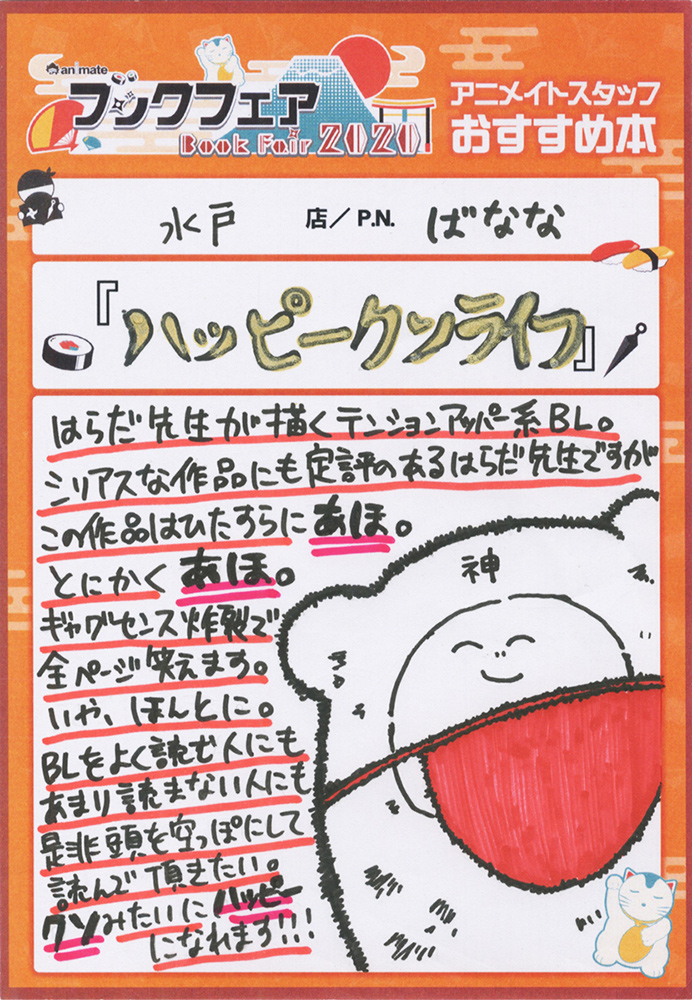 animate
ブックフェア
Book Fair 2020
アニメイトスタッフ
おすすめ本
水戸 店/P.N. ばなな
『ハッピークソライフ』
はらだ先生が描くテンションアッパー系BL。
シリアスな作品にも定評のあるはらだ先生ですが
この作品はひたすらにあほ。
とにかくあほ。
ギャグセンス炸裂で
全ページ笑えます。
いや、ほんとに。
BLをよく読む人にも
あまり読まない人にも
是非頭を空っぽにして
読んで頂きたい。
クソみたいにハッピー
になれます!!!
神